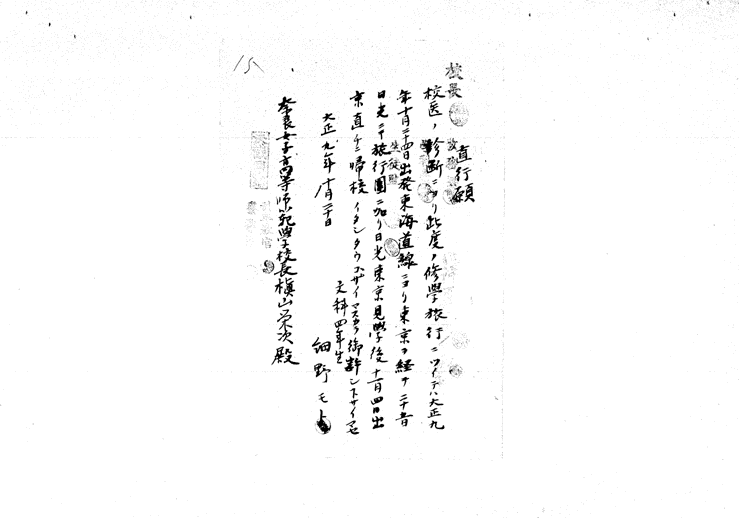 15
校長
直行願
校医ノ診断ニヨリ此度ノ修學旅行ニツイテハ大正九
年十月二十四日出発東海道線ニヨリ東京ヲ経テ二十五日
日光ニテ旅行團ニ加リ日光東京見學後十一月四日出
京直チニ帰校イタシタウゴザイマスカラ御許シ下サイマセ
大正九年十月二十日
文科四年生
細野モト
奈良女子高等師範學校長槇山栄次殿